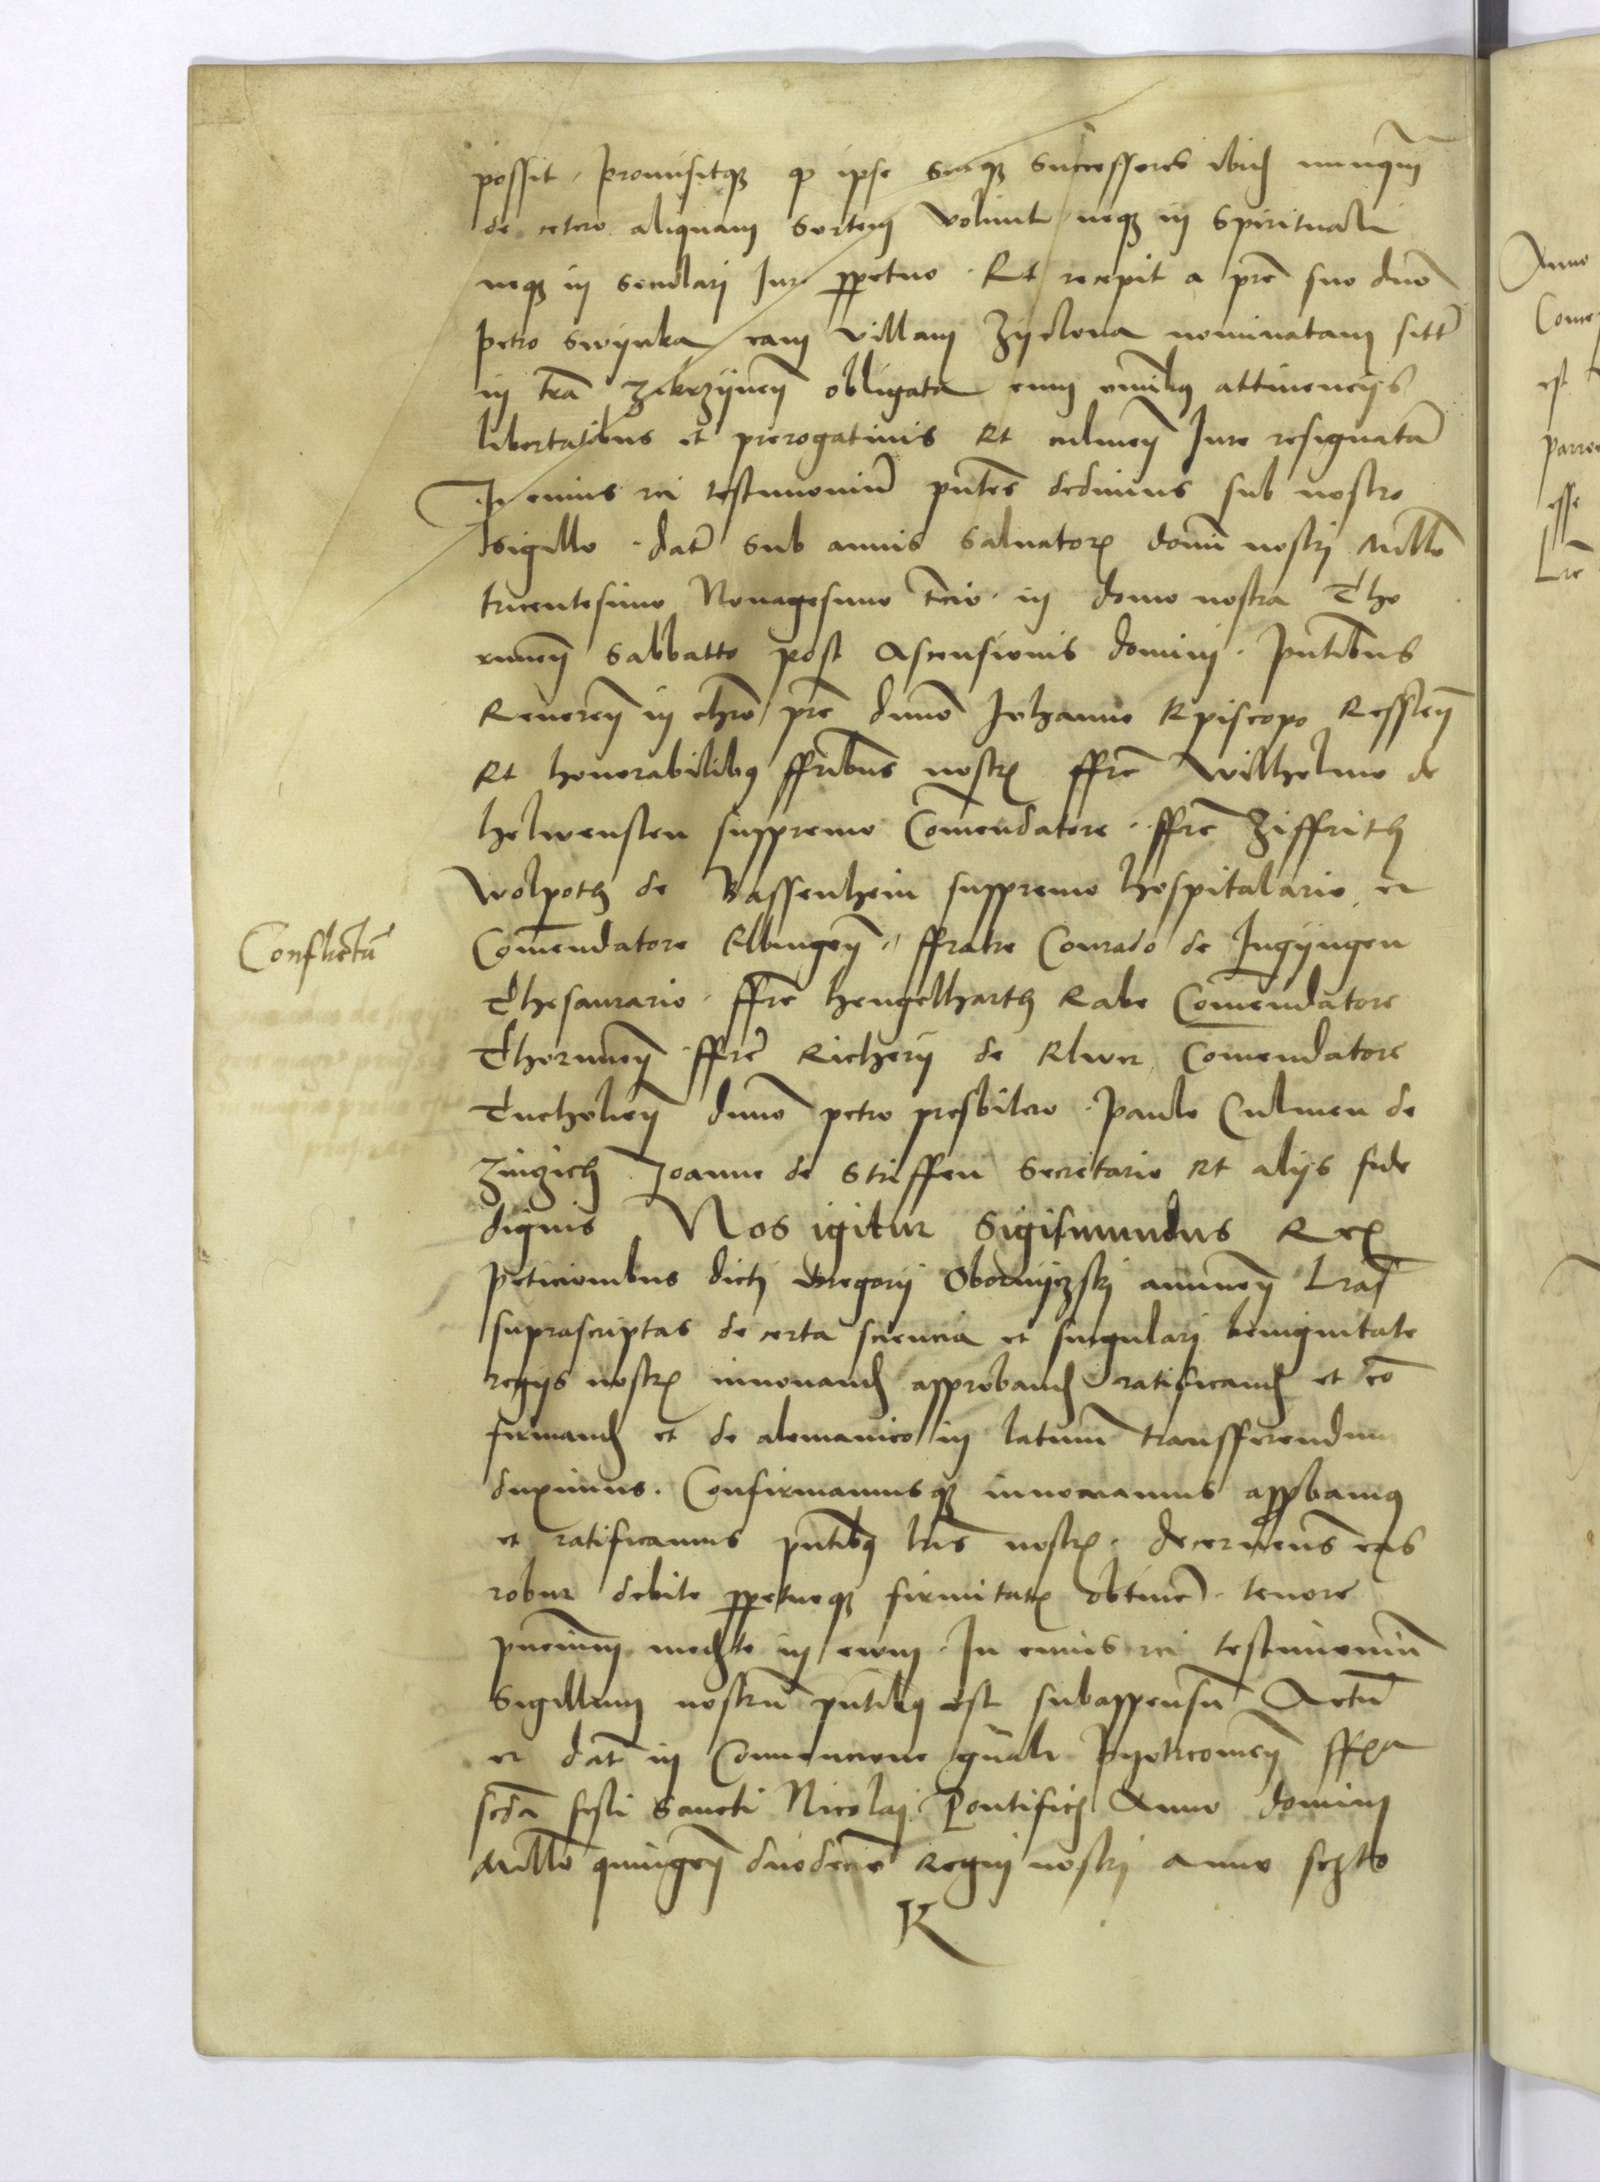 possit, Promisitq(ue) q(uod) ipse suiq(ue) successores ibid(em) nunq(ua)m
de cetero aliquam sortem volunt neq(ue) in spirituali
neq(ue) in seculari Jure p(er)petuo. Et recepit a p(at)re suo d(omi)no
petro Swynka eam villam Zyelona nominatam sitt(am)
in t(er)ra obligata cum om(n)ib(us) attinencijs
libertatibus et prerogativis Et culmen(si) Jure resignata(m)
In cuius rei testimoniu(m) p(rese)ntes dedimus sub nostro
sigillo. dat(um) sub annis salvator(is) domi(ni) nostri Mill(esim)o
tricentesimo Nonagesimo t(er)cio. in domo nostra Tho
runen(si) Sabbatto post Ascensionis domini. p(rese)ntibus
Reveren(do) in chr(ist)o p(at)re d(omi)no Johanne Episcopo
Et honorabilibus ffr(atr)ibus nostr(is) ffr(atr)e Wilhelmo de
helwensten suppremo Com(m)endatore. ffr(atr)e Ziffrith
Wolpoth de Bassenhein suppremo hospitalario et
Com(m)endatore Elbingen(si), ffratre Conrado de Jngyngen
Thesaurario. ffr(atr)e hengelharth Rabe Com(m)endatore
Thorunen(si) ffr(atr)e Richerij de Elwer Comendatore
Tucholien(si) d(omi)no petro presbitero. Paulo Culmen de
Zinzich Joanne de Streffen Secretario Et alijs fide
dignis Nos igitur Sigismundus Rex
peticionibus dicti Gregorij Obornyczski annuen(tes) L(itte)ras
suprascriptas de certa sciencia et singulari benignitate
regijs nostr(is) innovand(um) approband(um) ratificand(um) et co(n)
firmand(um) et de alemanico in latinu(m) transfferendum
duximus. Confirmamusq(ue) innovamus app(ro)bamus
et ratificamus p(rese)ntib(us) l(itte)ris nostr(is). decernen(te)s eas
robur debite p(er)petueq(ue) firmitat(is) obtine(re). tenore
p(rese)ncium med(ian)te in evum. In cuius rei testimoniu(m)
Sigillum nostru(m) p(rese)ntib(us) est subappensu(m) Actu(m)
et dat(um) in Convencione g(e)n(er)ali Pyotrcovien(si) ff(eri)a
s(e)c(un)da festi Sancti Nicolai Pontific(is) Anno domini
Mill(esim)o quingen(tesimo) duodecimo Regni nostri anno sexto
Conflictu(m)
K
Anno